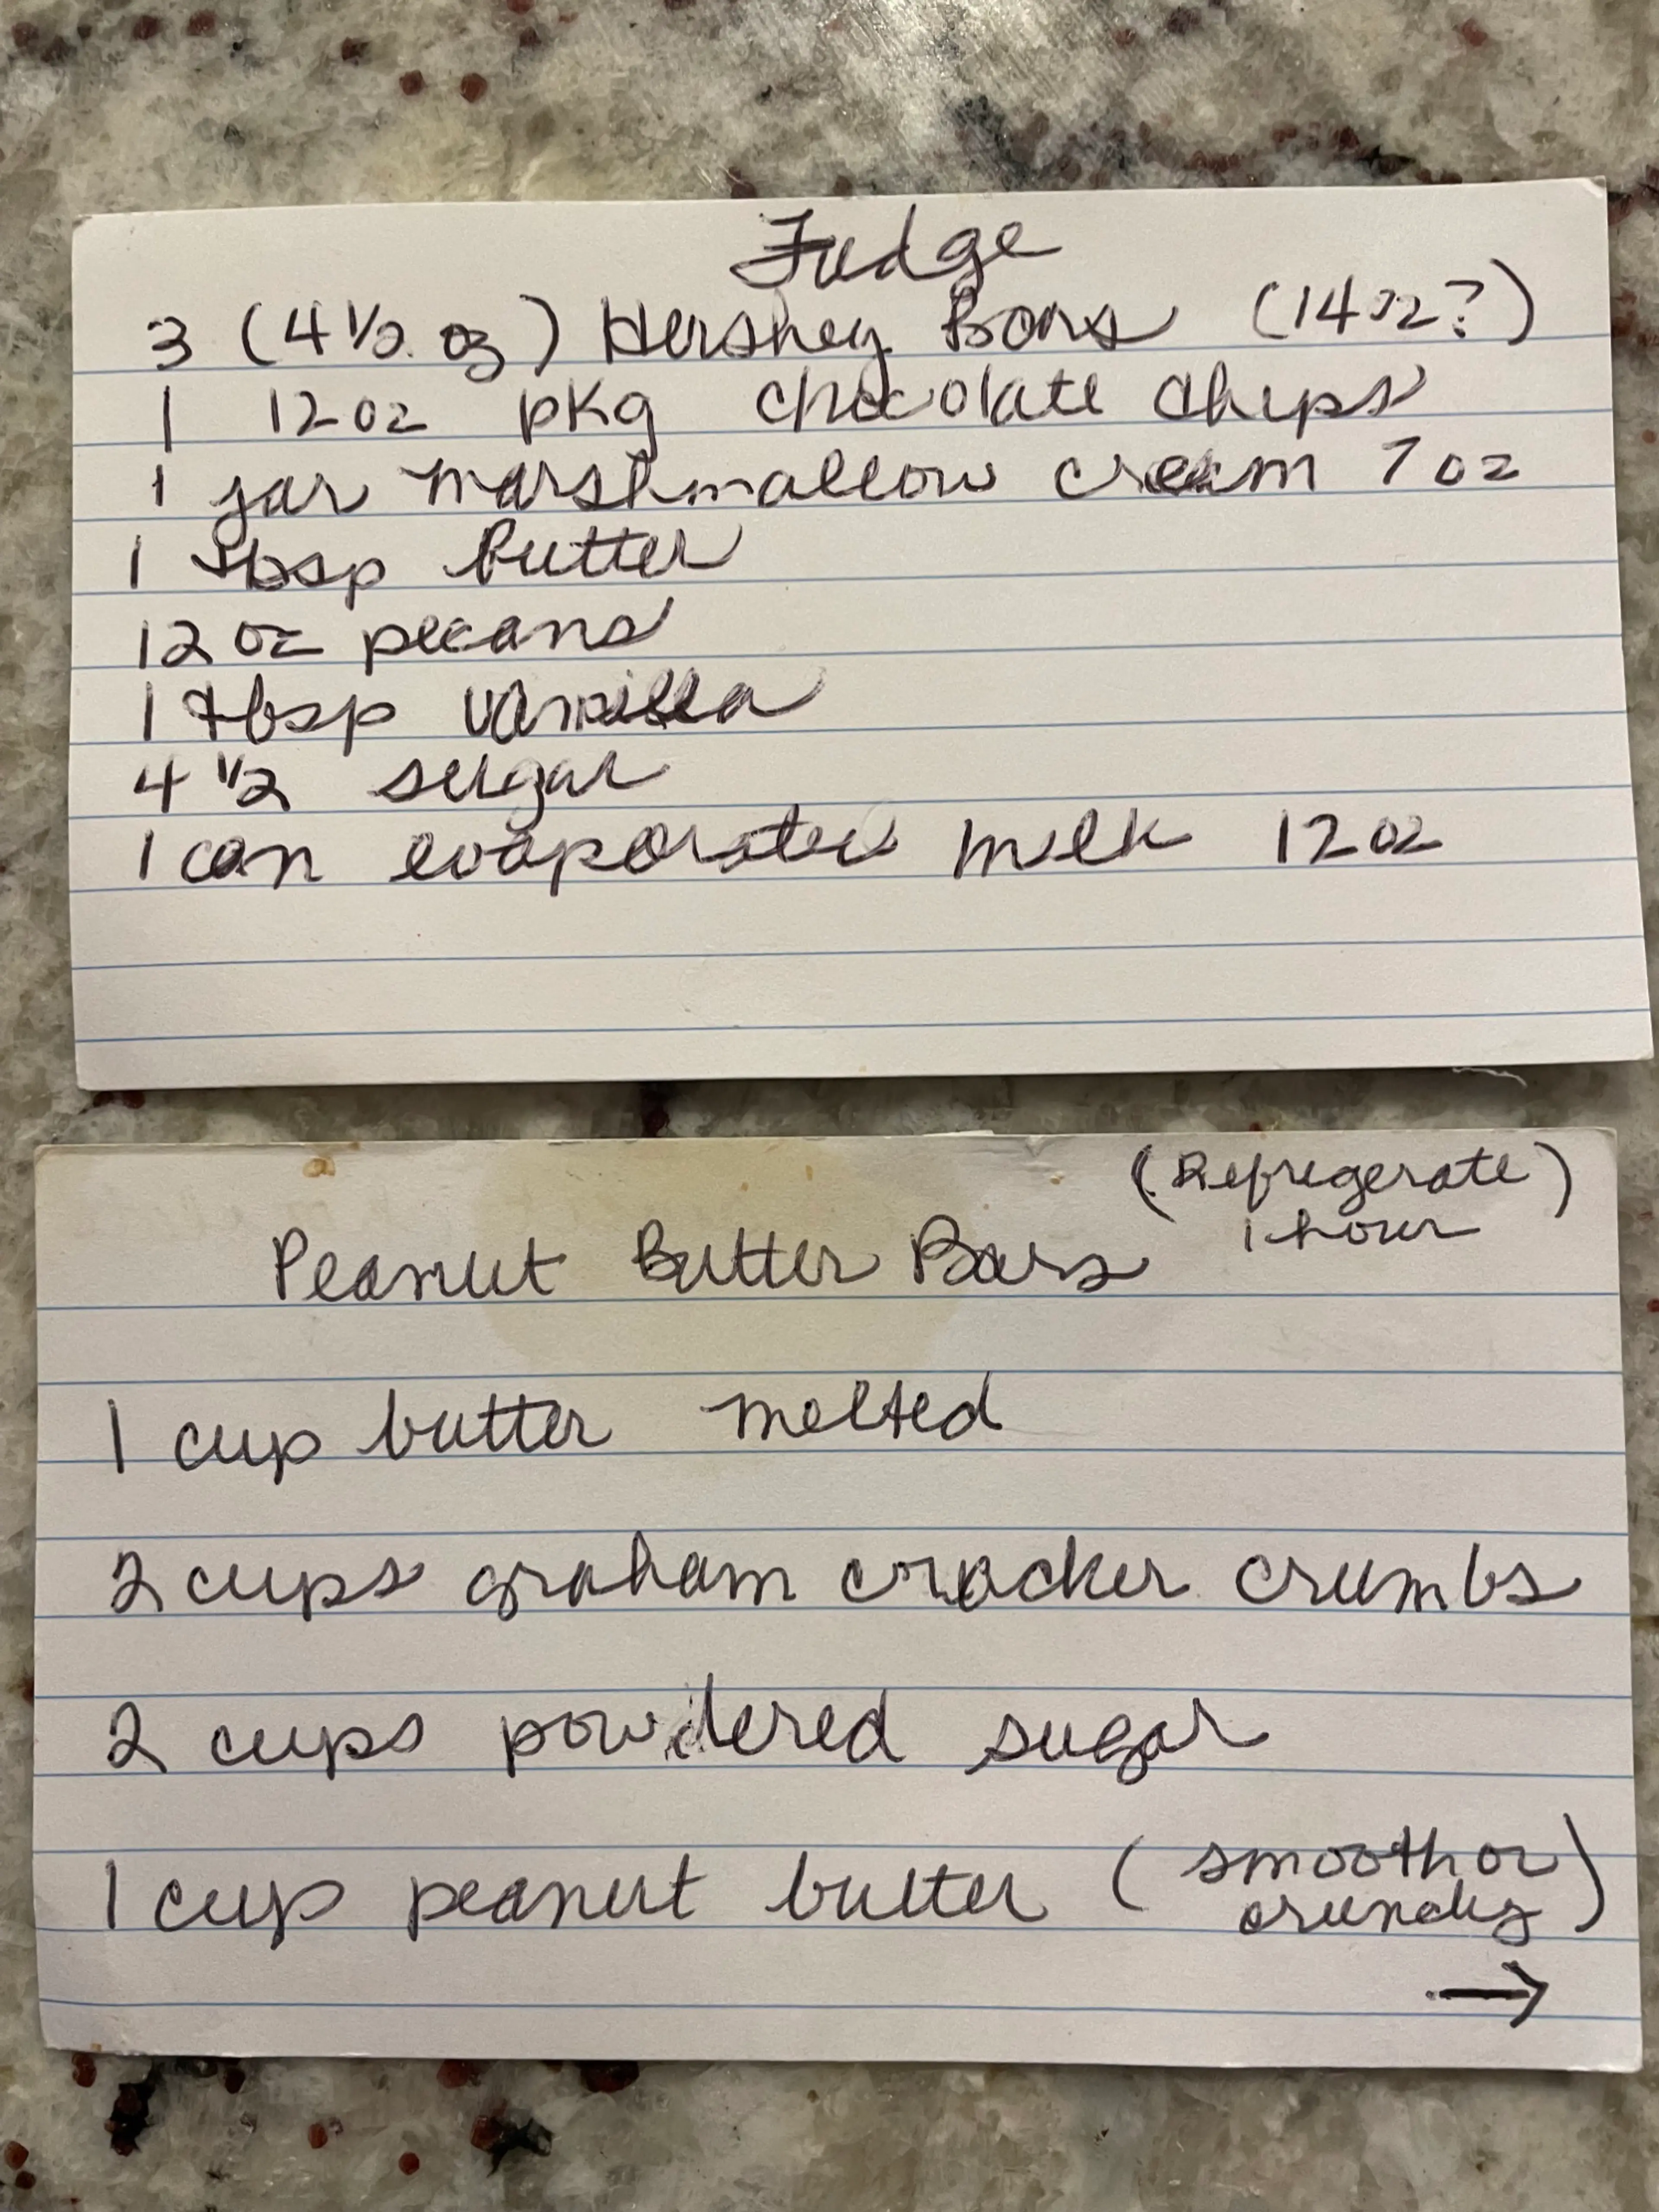 Fudge
3 (4 1/2 oz) Hershey Bars (14oz?)
1 12oz pkg chocolate chips
1 jar marshmallow cream 7oz
1 tbsp butter
12 oz pecans
1 tbsp vanilla
4 1/2 sugar
1 can evaporated milk 12oz
(Refregerate)
1 hour
Peanut Butter Bars
1 cup butter melted
2 cups graham cracker crumbs
2 cups powdered sugar
1 cup peanut butter (smooth or
crunchy)
→